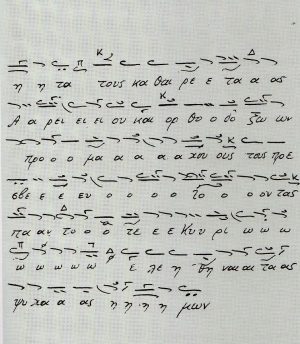 η η τα τους καθαι ρε ε τα α ας
Α α ρει ει ει ου και ορ θο ο δο ξω ων
προ ο ο μα α α α α χου ους τας πρε
σβε ε ε ευ ο ο ο ο το ο ο ον τας
πα αν το ο ο τε ε ε Κυ υ ρι ω ω
ω ω ω ω ω ε λε η θη ναι αι τα ας
ψυ χα α ας η η η η μων